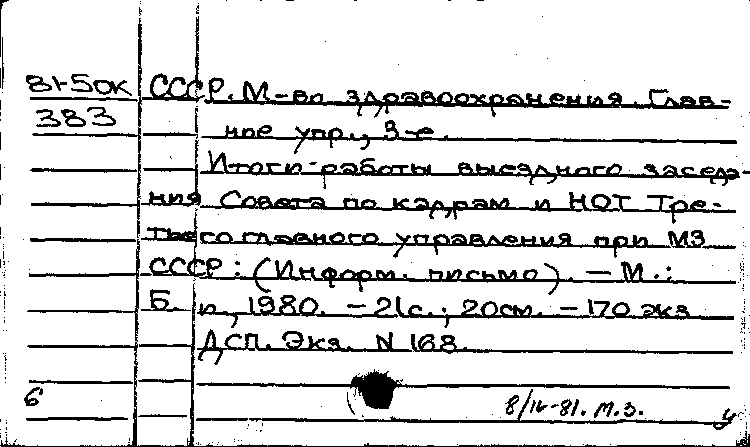 81-5ок СССР. М-во здравоохранения. Глав-
383 ное упр., 3-е.
Итоги работы выездного заседа-
ния Совета по кадрам и НОТ Тре-
тьего главного управления при МЗ
СССР: (Информ. письмо). — М.:
Б. и., 1980. — 21с.; 20см. — 170 экз
ДСП. Экз. N 168.
6 8/IV-81. М.З. У